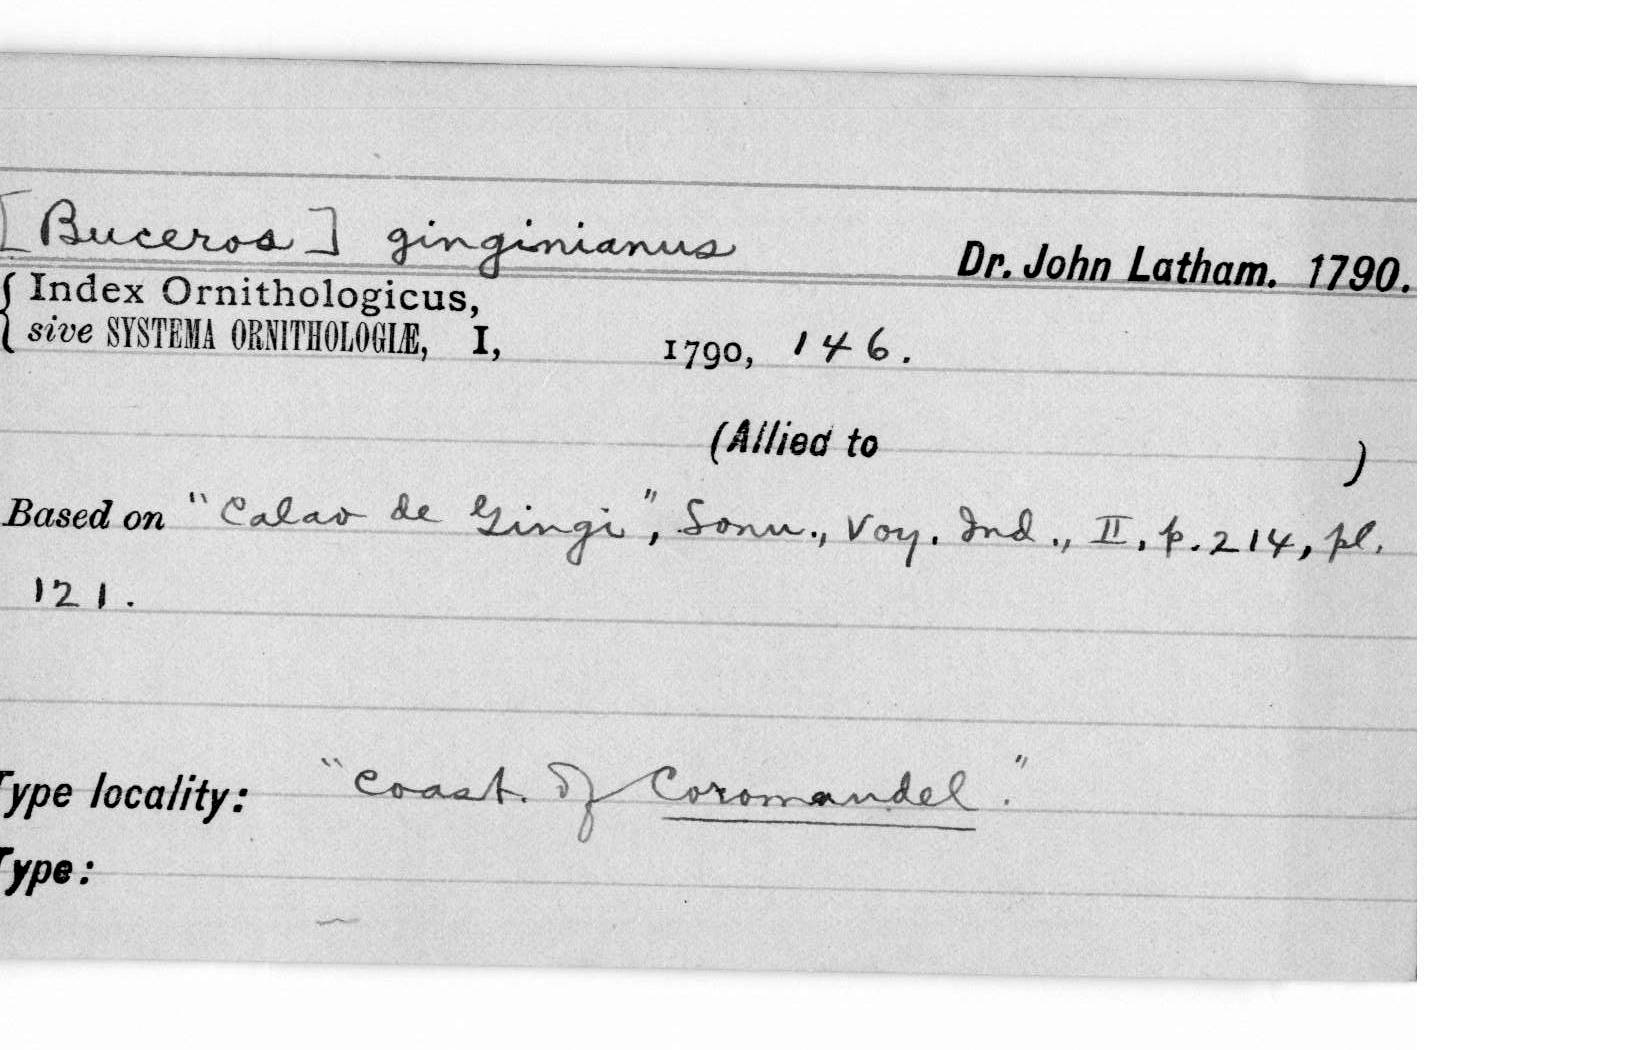 [Buceros] ginginianus Dr. John Latham. 1790.
Index Ornithologicus,
sive SYSTEMA ORNITHOLOGIÆ, I, 1790, 146.
(Allied to )
Based on "Calao de Gingi", Sonn., Voy. Ind., II, p. 214, pl.
121.
Type locality: "Coast. of Coromandel."
Type: